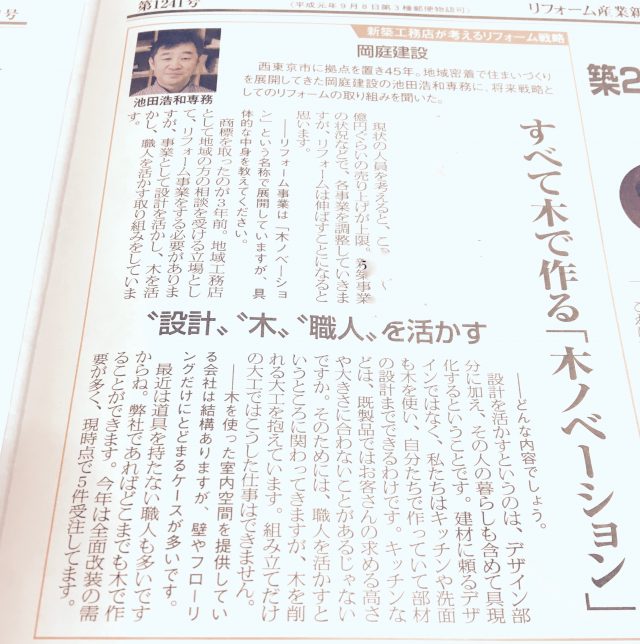 第1241号
(平成元年9月8日第3種郵便物認可)
リフォーム産業新
号
築2
新築工務店が考えるリフォーム戦略
岡庭建設
西東京市に拠点を置き45年。地域密着で住まいづくり
を展開してきた岡庭建設の池田浩和専務に、将来戦略と
してのリフォームの取り組みを聞いた。
池田浩和専務
すべて木で作る「木ノベーション」
現状の人員を考えると、こ
億円ぐらいの売り上げが上限。
の状況などで、各事業を調整していきま
すが、リフォームは伸ばすことになると
思います。
――リフォーム事業は「木ノベーショ
ン」という名称で展開していますが、具
体的な中身を教えてください。
商標を取ったのが3年前。地域工務店
として地域の方の相談を受ける立場とし
て、リフォーム事業をする必要がありま
すが、事業として設計を活かし、木を活
かし、職人を活かす取り組みをしていま
す。
〝設計〟〝木〟〝職人〟を活かす
――どんな内容でしょう。
設計を活かすというのは、デザイン部
分に加え、その人の暮らしも含めて具現
化するということです。建材に頼るデザ
インではなく、私たちはキッチンや洗面
も木を使い、自分たちで作っていて部材
の設計までできるわけです。キッチンな
どは、既製品ではお客さんの求める高さ
や大きさに合わないことがあるじゃない
ですか。そのためには、職人を活かすと
いうところに関わってきますが、木を削
れる大工を抱えています。組み立てだけ
の大工ではこうした仕事はできません。
――木を使った室内空間を提供してい
る会社は結構ありますが、壁やフローリ
ングだけにとどまるケースが多いです。
最近は道具を持たない職人も多いです
からね。弊社であればどこまでも木で作
ることができます。今年は全面改装の需
要が多く、現時点で5件受注してます。